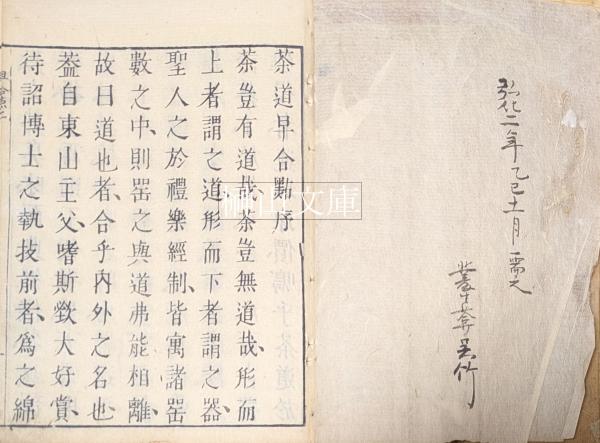 弘化二年乙巳十一月需之
茶道早合點序
茶豈有道哉茶豈無道哉形而
上者謂之道形而下者謂之器
聖人之於禮樂經制皆寓諸器
數之中則器之與道弗能相離
故曰道也者合乎内外之名也
葢自東山主父嗜斯欵大好賞
待詔博士之執技前者爲之綿
文庫